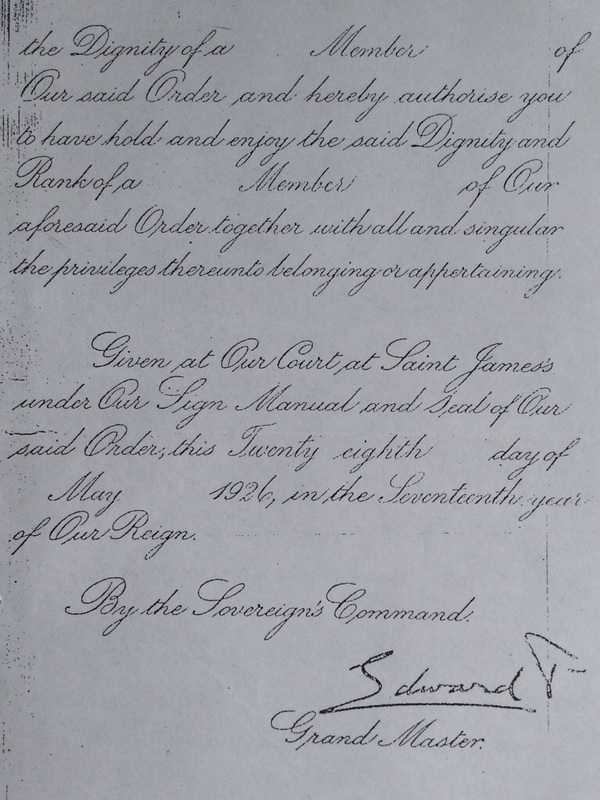 the Dignity of a Member of
Our said Order and hereby authorise you
to have hold and enjoy the said Dignity and
Rank of a Member of Our
aforesaid Order together with all and singular
the privileges thereunto belonging or appertaining.
Given at Our Court at Saint James's
under Our Sign Manual and Seal of Our
said Order, this Twenty eighth day of
May 1926, in the Seventeenth year
of Our Reign.
By the Sovereign's Command.
Edward P
Grand Master.